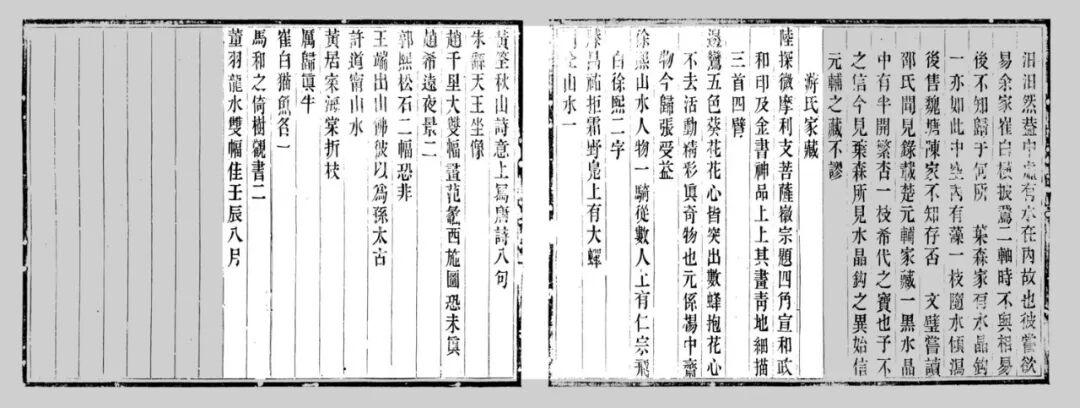 汩汩然葢中虚有水在內故也彼嘗欲
易余家崔白横披鵞二軸時不與相易
後不知歸于何所 葉森家有水晶鈎
一亦如此中空內有藻一枝隨水傾瀉
後售魏塘陳家不知存否 文璧嘗讀
邵氏聞見錄載楚元輔家藏一黑水晶
中有半開繁杏一枝希代之寶也子不
之信今見葉森所見水晶鈎之異始信
元輔之藏不謬
游氏家藏
陸探微摩利支菩薩徽宗題四角宣和政
和印及金書神品上上其畫靑地細描
三首四臂
邊鸞五色葵花花心皆突出數蜂抱花心
不去活動精彩眞奇物也元係楊中齋
物今歸張受益
徐熙山水人物一騎從數人上有仁宗飛
白徐熙二字
滕昌祐拒霜野鳧上有大蟬
山水一
黃筌秋山詩意上寫唐詩八句
朱繇天王坐像
趙千里大雙幅畫范蠡西施圖恐未眞
趙希遠夜景二
郭熙松石二幅恐非
王端出山佛彼以爲孫太古
許道甯山水
黃居寀海棠折枝
厲歸眞牛
崔白猫魚各一
馬和之倚樹觀書二
董羽龍水雙幅佳壬辰八月